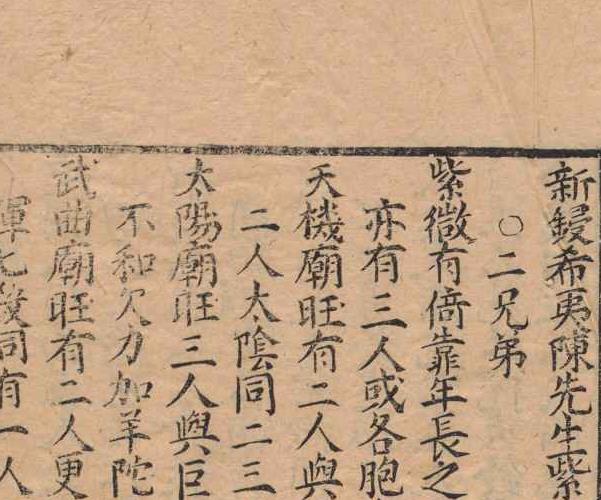 新鍥希夷陳先生紫
○二兄弟
紫微有倚靠年長之
亦有三人或各胞
天機廟旺有二人與
二人太陰同二三
太陽廟旺三人與巨
不和欠力加羊陀
武曲廟旺有二人更
同有一人